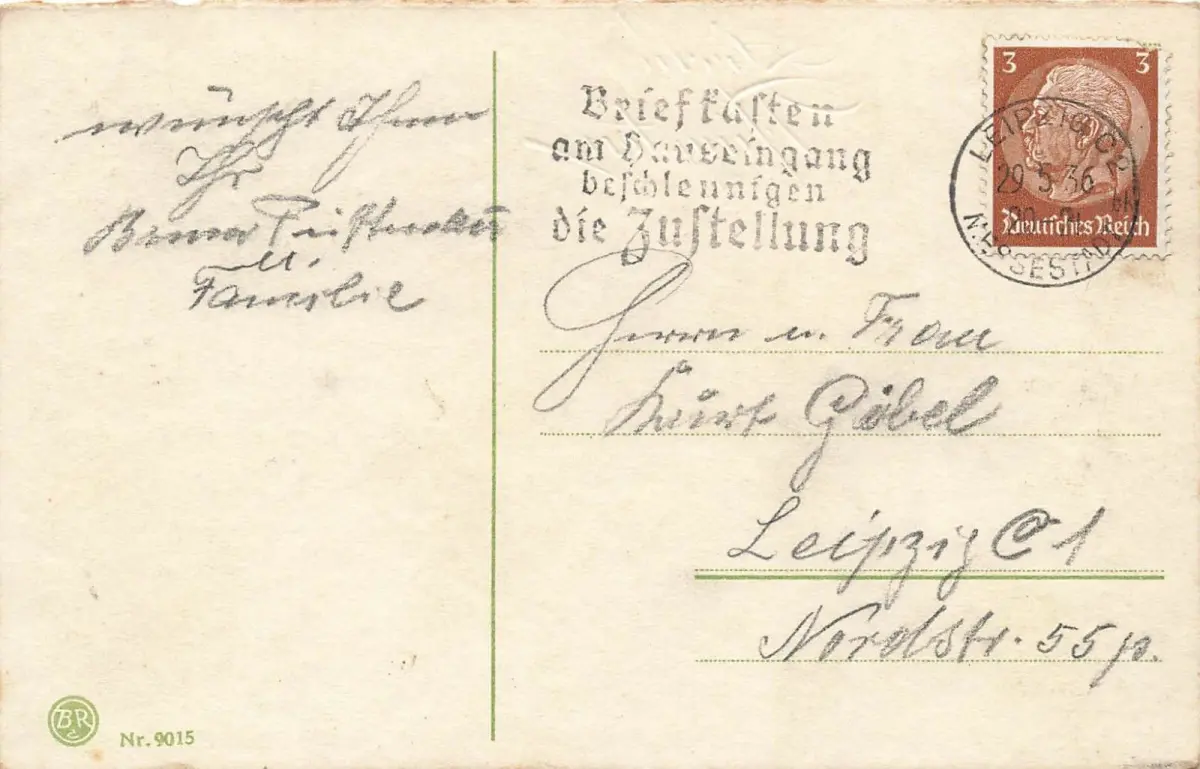 wünscht Ihnen
Ihr
Bruno
u.
Familie
Briefkasten
am Hauseingang
beschleunigen
die Zustellung
3 3
Deutsches Reich
LEIPZIG C2
29.5.36
MESSESTADT
Herrn u. Frau
Kurt Göbel
Leipzig C 1
Nordstr. 55 p.
BR
Nr. 9015